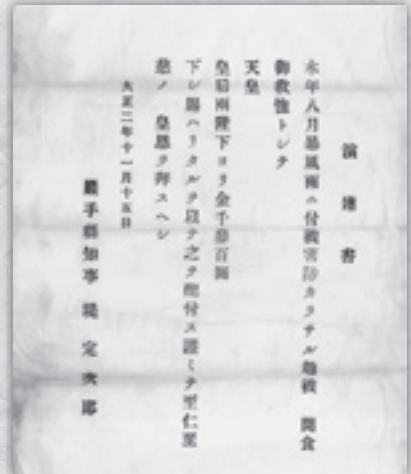 演達書
本年八月暴風雨ニ付被害防カラサル趣被 聞食
御救恤トシテ
天皇
皇后両陛下ヨリ金千参百圓
下シ賜ハリタルヲ以テ之ヲ配付ス謹ミテ聖仁至
慈ノ 皇恩ヲ拝スヘシ
大正二年十一月十五日
巖手縣知事 堤 定次郎